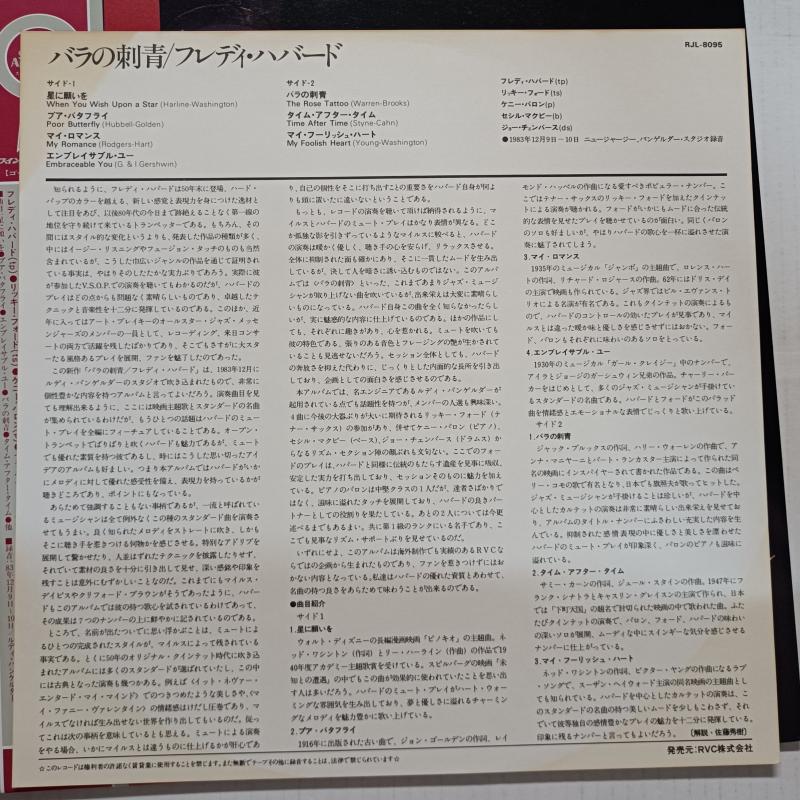 バラの刺青/フレディ・ハバード
RJL-8095
サイド-1
星に願いを
When You Wish Upon a Star (Harline-Washington)
プア・バタフライ
Poor Butterfly (Hubbell-Golden)
マイ・ロマンス
My Romance (Rodgers-Hart)
エンブレイサブル・ユー
Embraceable You (G. & I.Gershwin)
サイド-2
バラの刺青
The Rose Tattoo (Warren-Brooks)
タイム・アフター・タイム
Time After Time (Styne-Cahn)
マイ・フーリッシュ・ハート
My Foolish Heart (Young-Washington)
フレディ・ハバード(tp)
リッキー・フォード(ts)
ケニー・バロン(p)
セシル・マクビー(b)
ジョー・チェンバース(ds)
●1983年12月9日〜10日 ニュージャージー、バンゲルダー・スタジオ録音
知られるように、フレディ・ハバードは50年末に登場、ハード・
バップのカラーを越える、新しい感覚と表現力を身につけた逸材と
して注目をあび、以後80年代の今日まで跡絶えることなく第一線の
地位を守り続けて来ているトランペッターである。もちろん、その
間にはスタイル的な変化というよりも、発表した作品の種類が多く、
中にはイージー・リスニングやフュージョン・タッチのものも当然
含まれているが、こうした巾広いジャンルの作品を通じて証明され
ている事実は、やはりそのしたたかな実力ぶりであろう。実際に彼
が参加したV.S.O.P.での演奏を聴いてもわかるのだが、ハバードの
プレイはどの点からも問題なく素晴らしいものであり、卓越したテ
クニックと音楽性を十二分に発揮しているのである。このほか、近
年に入ってはアート・ブレイキーのオールスター・ジャズ・メッセ
ンジャーズのメンバーの一員として、レコーディング、来日コンサ
ートの両方で活躍を残したばかりであり、そこでもさすがに大スタ
ーたる風格あるプレイを展開、ファンを魅了したのであった。
この新作「バラの刺青/フレディ・ハバード」は、1983年12月に
ルディ・バンゲルダーのスタジオで吹き込まれたもので、非常に
個性豊かな内容を持つアルバムと言ってよいだろう。演奏曲目を見
ても理解出来るように、ここには映画主題歌とスタンダードの名曲
が集められているわけだが、もうひとつの話題はハバードのミュー
ト・プレイを全編にフィーチュアしていることである。オープン・
トランペットでばりばりと吹くハバードも魅力であるが、ミュート
でも優れた素質を持つ彼であるし、時にはこうした思い切ったアイ
デアのアルバムも好ましい。つまり本アルバムではハバードがいか
にメロディに対して優れた感受性を備え、表現力を持っているかが
聴きどころであり、ポイントにもなっている。
あらためて強調することもない事柄であるが、一流と呼ばれてい
るミュージシャンは全て例外なくこの種のスタンダード曲を演奏さ
せてもうまい。良く知られたメロディをストレートに吹き、しかも
そこに聴き手を惹きつける何物かを感じさせる。特別なアドリブを
展開して驚かせたり、人並はずれたテクニックを披露したりせず、
それでいて素材の良さを十分に引き出して見せ、深い感銘や印象を
残すことは意外にむずかしいことなのだ。これまでにもマイルス・
デイビスやクリフォード・ブラウンがそうであったように、ハバー
ドもこのアルバムでは彼の持つ歌心を試されているわけであって、
その成果は7つのナンバーの上に鮮やかに記されているのである。
ところで、名前が出たついでに思い浮かぶことは、ミュートによ
るひとつの完成されたスタイルが、マイルスによって残されている
事実である。とくに50年のオリジナル・クインテット時代に吹き込
まれたアルバムには多くのスタンダードが選ばれていたし、この中
には古典となった演奏も幾つかある。例えば《イット・ネヴァー・
エンタード・マイ・マインド》でのつきつめたような美しさや、《マ
イ・ファニー・ヴァレンタイン》の情緒感はけだし圧巻であり、マ
イルスでなければ生み出せない世界を作り出してもいるのだ。従っ
てこれは次の事柄を意味しているとも思える。ミュートによる演奏
をやる場合、いかにマイルスとは違うものに仕上げるかが肝心であ
り、自己の個性をそこに打ち出すことの重要さをハバード自身が何よ
りも頭に置いたに違いないということである。
もっとも、レコードの演奏を聴いて頂けば納得されるように、マ
イルスとハバードのミュート・プレイはかなり表情が異なる。どこ
か孤独な影を引きずっているようなマイルスに較べると、ハバード
の演奏は暖かく優しく、聴き手の心を安らげ、リラックスさせる。
全体に抑制された面も確かにあり、そこに一貫したムードを生み出
しているが、決して人を暗さに誘い込むものではない。このアルバ
ムでは《バラの刺青》といった、これまであまりジャズ・ミュージ
シャンが取り上げない曲を吹いているが、出来栄えは大変に素晴らし
いものになっている。ハバード自身この曲を全く知らなかったらし
いが、実に魅惑的な内容に仕上げているのだ。ほかの作品にし
ても、それぞれに趣きがあり、心を惹かれる。ミュートを吹いても
彼の特色である、張りのある音色とフレージングの艶が生かされて
いることも見逃せないだろう。セッション全体としても、ハバード
の奔放さを抑えた代わりに、じっくりとした内面的な長所を引き出
しており、企画としての面白さを感じさせるのである。
本アルバムでは、名エンジニアであるルディ・バンゲルダーが
起用されている点でも話題性を持つが、メンバーの人選も興味深い。
4曲に今後の大器ぶりが大いに期待されるリッキー・フォード(テ
ナー・サックス)の参加があり、併せてケニー・バロン(ピアノ)、
セシル・マクビー(ベース)、ジョー・チェンバース(ドラムス)か
らなるリズム・セクション陣の顔ぶれも文句ない。ここでのフォー
ドのプレイは、ハバードと同様に伝統のもたらす遺産を見事に吸収、
安定した実力を打ち出しており、セッションそのものに魅力を加え
ている。ピアノのバロンは中堅クラスの1人だが、達者さばかりで
はなく、滋味に溢れたタッチを展開しており、ハバードの良きパー
トナーとしての役割りを果たしている。あとの2人については今更
述べるまでもあるまい。共に第1級のランクにいる名手であり、こ
こでも見事なリズム・サポートぶりを見せているのだ。
いずれにせよ、このアルバムは海外制作でも実績のあるRVCな
らではの企画から生まれたものであり、ファンを惹きつけずにはお
かない内容となっている。私達はハバードの優れた資質とあわせて、
名曲の持つ良さをあらためて味わうことが出来るのである。
●曲目紹介
サイド1
1.星に願いを
ウォルト・ディズニーの長編漫画映画「ピノキオ」の主題曲。ネ
ッド・ワシントン(作詞)とリー・ハーライン(作曲)の作品で19
40年度アカデミー主題歌賞を受けている。スピルバーグの映画「未
知との遭遇」の中でもこの曲が効果的に使われていたことを思い出
す人も多いだろう。ハバードのミュート・プレイがハート・ウォー
ミングな雰囲気を生み出しており、夢と優しさに溢れるチャーミン
グなメロディを魅力豊かに歌い上げている。
2.プア・バタフライ
1916年に出版された古い曲で、ジョン・ゴールデンの作詞、レイ
モンド・ハッベルの作曲になる愛すべきポピュラー・ナンバー。こ
こではテナー・サックスのリッキー・フォードを加えたクインテッ
トによる演奏が聴かれる。フォードがいかにもムードに合った伝統
的な表情を見せたプレイを聴かせているのが面白い。同じくバロン
のソロも好ましいが、やはりハバードの歌心を一杯に溢させた演
奏に魅了されてしまう。
3.マイ・ロマンス
1935年のミュージカル「ジャンボ」の主題曲で、ロレンス・ハー
トの作詞、リチャード・ロジャースの作曲。62年にはドリス・デイ
の主演で映画も作られている。ジャズ界ではビル・エヴァンス・ト
リオによる名演が有名である。これもクインテットの演奏によるも
ので、ハバードのコントロールの効いたプレイが見事であり、マイ
ルスとは違った暖か味と優しさを感じさせずにはおかない。フォー
ド、バロンもそれぞれに味わいのあるソロをとっている。
4.エンブレイサブル・ユー
1930年のミュージカル「ガール・クレイジー」中のナンバーで、
アイラとジョージのガーシュウィン兄弟の作品。チャーリー・パー
カーをはじめとして、多くのジャズ・ミュージシャンが手掛けてい
るスタンダードの名曲である。ハバードとフォードがこのバラッド
曲を情緒感とエモーショナルな表情でじっくりと歌い上げている。
サイド2
1.バラの刺青
ジャック・ブルックスの作詞、ハリー・ウォーレンの作曲で、ア
ンナ・マニヤーニとバート・ランカスター主演によって作られた同
名の映画にインスパイヤーされて書かれた作品である。この曲はペ
リー・コモの歌で有名となり、日本でも旗照夫が歌ってヒットした。
ジャズ・ミュージシャンが手掛けることは珍しいが、ハバードを中
心としたカルテットの演奏は非常に素晴らしい出来栄えを見せてお
り、アルバムのタイトル・ナンバーにふさわしい充実した内容を生
んでいる。抑制された感情表現の中に優しさと美しさを漂わせた
ハバードのミュート・プレイが印象深く、バロンのピアノも滋味に
溢れている。
2.タイム・アフター・タイム
サミー・カーンの作詞、ジュール・スタインの作曲。1947年にフ
ランク・シナトラとキャスリン・グレイスンの主演で作られ、日本
では「下町天国」の題名で封切られた映画の中で歌われた曲。ふた
たびクインテットの演奏で、バロン、フォード、ハバードの味わい
の深いソロが展開、ムーディな中にスインギーな気分を感じさせる
ナンバーに仕上がっている。
3.マイ・フーリッシュ・ハート
ネッド・ワシントンの作詞、ビクター・ヤングの作曲になるラブ
・ソングで、スーザン・ヘイワード主演の同名映画の主題曲とし
ても知られている。ハバードを中心としたカルテットの演奏は、こ
のスタンダードの名曲の持つ美しいムードを少しもこわさず、それ
でいて彼等独自の感情豊かなプレイの魅力を十二分に発揮している。
印象に残るナンバーと言ってもよいだろう。 〔解説・佐藤秀樹〕
発売元:RVC株式会社
☆このレコードは権利者の許諾なく賃貸業に使用することを禁じます。また無断でテープその他に録音することは、法律で禁じられています☆